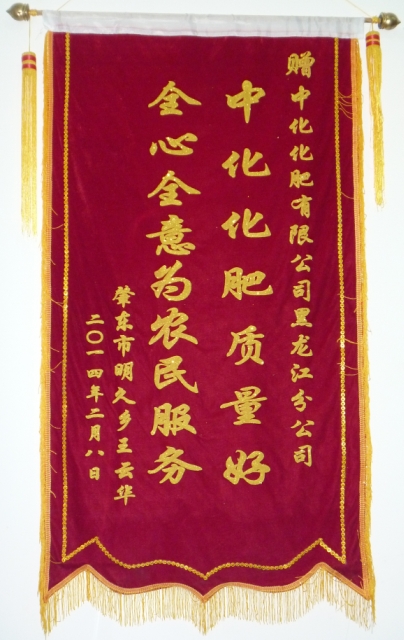 赠中化化肥有限公司黑龙江分公司
中化化肥质量好
全心全意为农民服务
肇东市明久乡王云华
二〇一四年二月八日